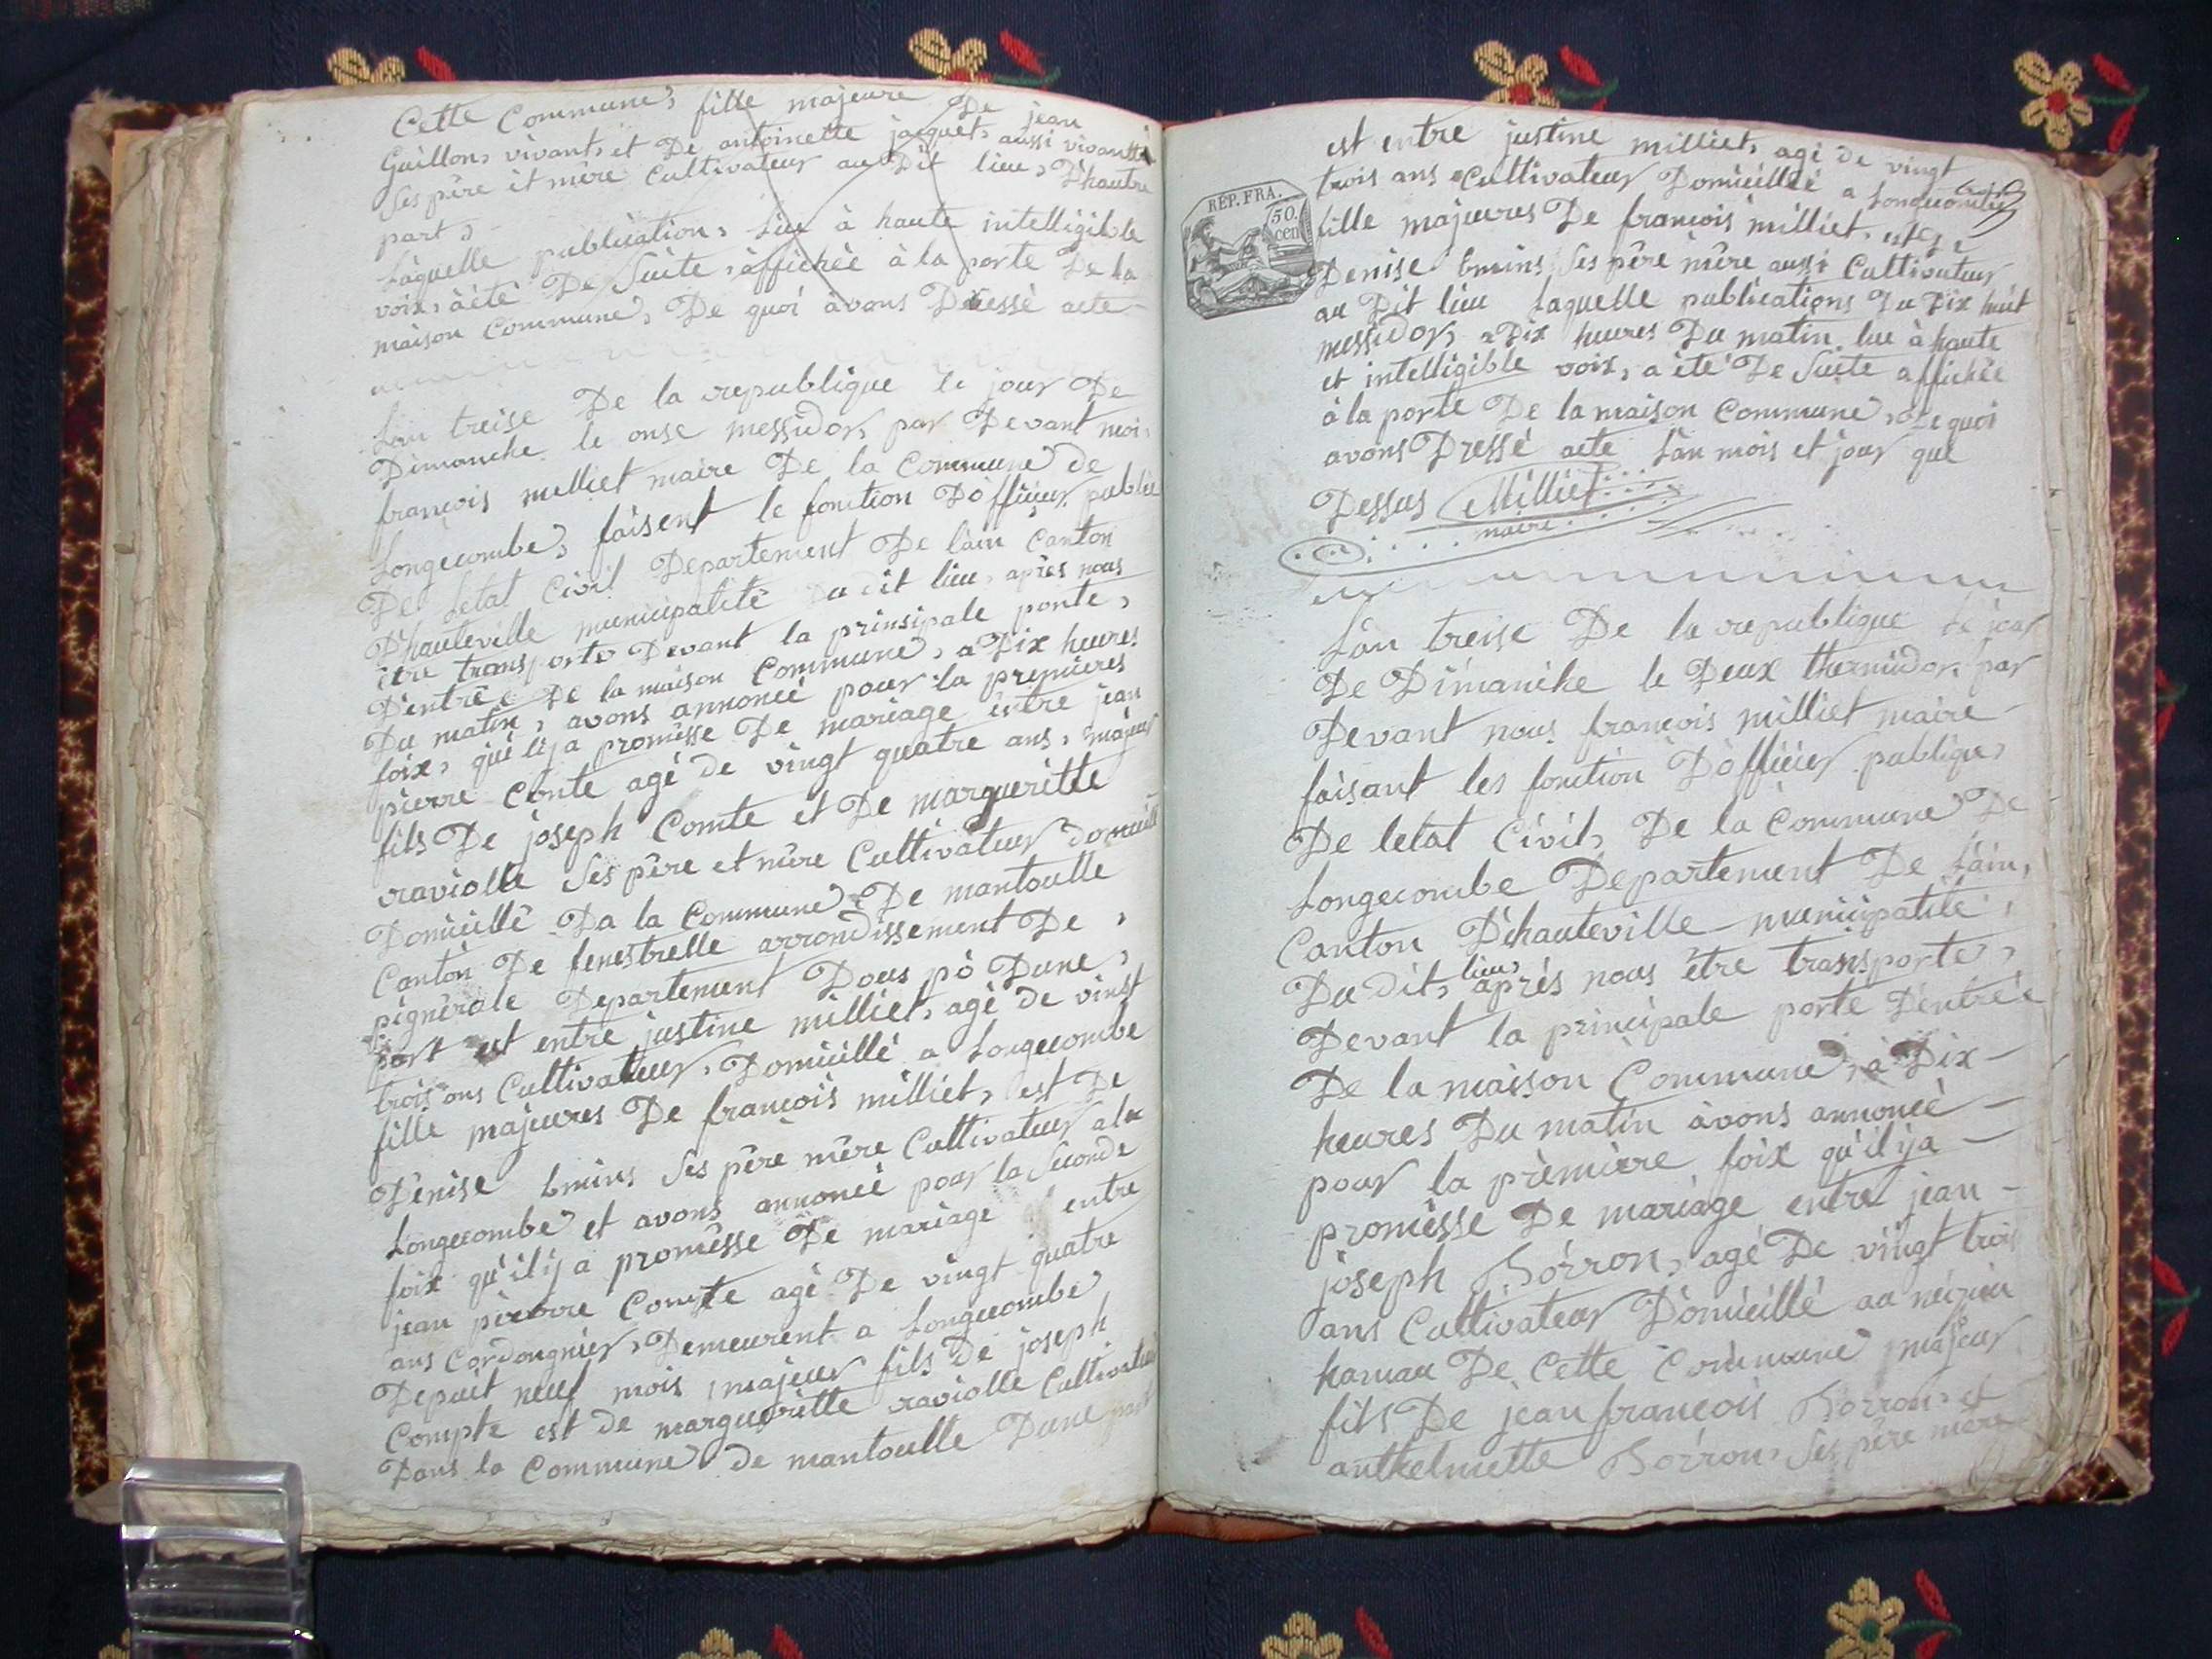 Cette Commune, fille majeure De jean
Guillon, vivant, et De antoinette jacquet, aussi vivantte
Ses père et mère Cultivateur au Dit lieu, D'hautre
part,
Laquelle publication, Lue à haute intelligible
voix, àété De Suite, affichée à la porte De la
maison Commune, De quoi àvons Dressé acte
Làn treise De la republique le jour De
Dimanche le onse messidor, par Devant moi,
françois milliet maire De la Commune de
Longecombe, faisent le fonction Dofficier public
De Letat Civil Departement De lain Canton
D'hauteville municipalité du dit lieu, après nous
être transporté Devant la prinsipale porte,
D'entrée De la maison Commune, a Dix heures
Du matin, avons annoncé pour la premieres
foix, qu'il ya promisse De mariage entre jean
pierre Conte agé de vingt quatre ans, majeur
fils De joseph Comte et De margueritte
raviolle Ses père et mère Cultivateur
Domicillé Da la Commune De mantoulle
Canton De fenestrelle arrondissement De,
pignérole Departement Dous pò Dune,
part est entre justine milliet, agé de vinst
trois ans Cultivateur, Domicillé a Longecombe
fille majeures De françois milliet, est De
Denise bruins Ses père mère Cultivateur a la
Longecombe et avons annoncé pour la Seconde
foix qu'il ij a promisse De mariage entre
jean pierre Compte agé De vingt quatre
ans Cordougnier, Demeurent a Longecombe
Depuit neuf mois, majeur fils De joseph
Compte est de margueritte raviolle Cultivateur
Dans la Commune de mantoulle Dune part
est entre justine milliet, agé de vingt
trois ans Cultivateur Domicillié a Longecombe
REP. FRA.
50.
cen
fille majeures De françois milliet, et De
Denise bruins Ses père mère aussi Cultivateur
au Dit lieu Laquelle publications Du Dix huit
messidor, a Dix heures Du matin lue à haute
et intelligible voix, a été De Suite affichée
à la porte De la maison Commune, De quoi
avons Dressé acte Làn mois et jour que
Dessus Milliet
maire
Làn treise De la republique Le jour
De Dimanche le Deux thermidor, par
Devant nous françois milliet maire
faisant les fonction Dofficier publique,
De letat Civil, De la Commune De
Longecombe Departement De Lain,
Canton D'hauteville municipalité,
lieu,
Du dit, après nous être transporté,
Devant la principale porte D'entrée
De la maison Commune, à Dix
heures Du matin àvons annoncé
pour la première foix qu'il ija
promisse De mariage entre jean
joseph Borron, agé De vingt trois
ans Cultivateur Domicillé au
hamau De Cette Commune majeur
fils De jean françois Borron, et
anthelmette Borron, Ses père mère